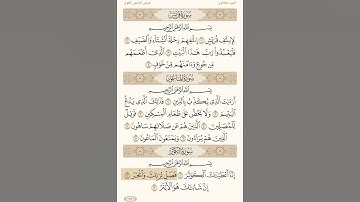 سُورَةُ قُرَيْشٍ
بِسْمِ ٱللَّهِ ٱلرَّحْمَٰنِ ٱلرَّحِيمِ
لِإِيلَٰفِ قُرَيْشٍ ۝١ إِۦلَٰفِهِمْ رِحْلَةَ ٱلشِّتَآءِ وَٱلصَّيْفِ ۝٢
فَلْيَعْبُدُوا۟ رَبَّ هَٰذَا ٱلْبَيْتِ ۝٣ ٱلَّذِىٓ أَطْعَمَهُم
مِّن جُوعٍ وَءَامَنَهُم مِّنْ خَوْفٍۭ ۝٤
سُورَةُ المَاعُونِ
بِسْمِ ٱللَّهِ ٱلرَّحْمَٰنِ ٱلرَّحِيمِ
أَرَءَيْتَ ٱلَّذِى يُكَذِّبُ بِٱلدِّينِ ۝١ فَذَٰلِكَ ٱلَّذِى يَدُعُّ
ٱلْيَتِيمَ ۝٢ وَلَا يَحُضُّ عَلَىٰ طَعَامِ ٱلْمِسْكِينِ ۝٣ فَوَيْلٌ
لِّلْمُصَلِّينَ ۝٤ ٱلَّذِينَ هُمْ عَن صَلَاتِهِمْ سَاهُونَ ۝٥
ٱلَّذِينَ هُمْ يُرَآءُونَ ۝٦ وَيَمْنَعُونَ ٱلْمَاعُونَ ۝٧
سُورَةُ الكَوْثَرِ
بِسْمِ ٱللَّهِ ٱلرَّحْمَٰنِ ٱلرَّحِيمِ
إِنَّآ أَعْطَيْنَٰكَ ٱلْكَوْثَرَ ۝١ فَصَلِّ لِرَبِّكَ وَٱنْحَرْ ۝٢
إِنَّ شَانِئَكَ هُوَ ٱلْأَبْتَرُ ۝٣